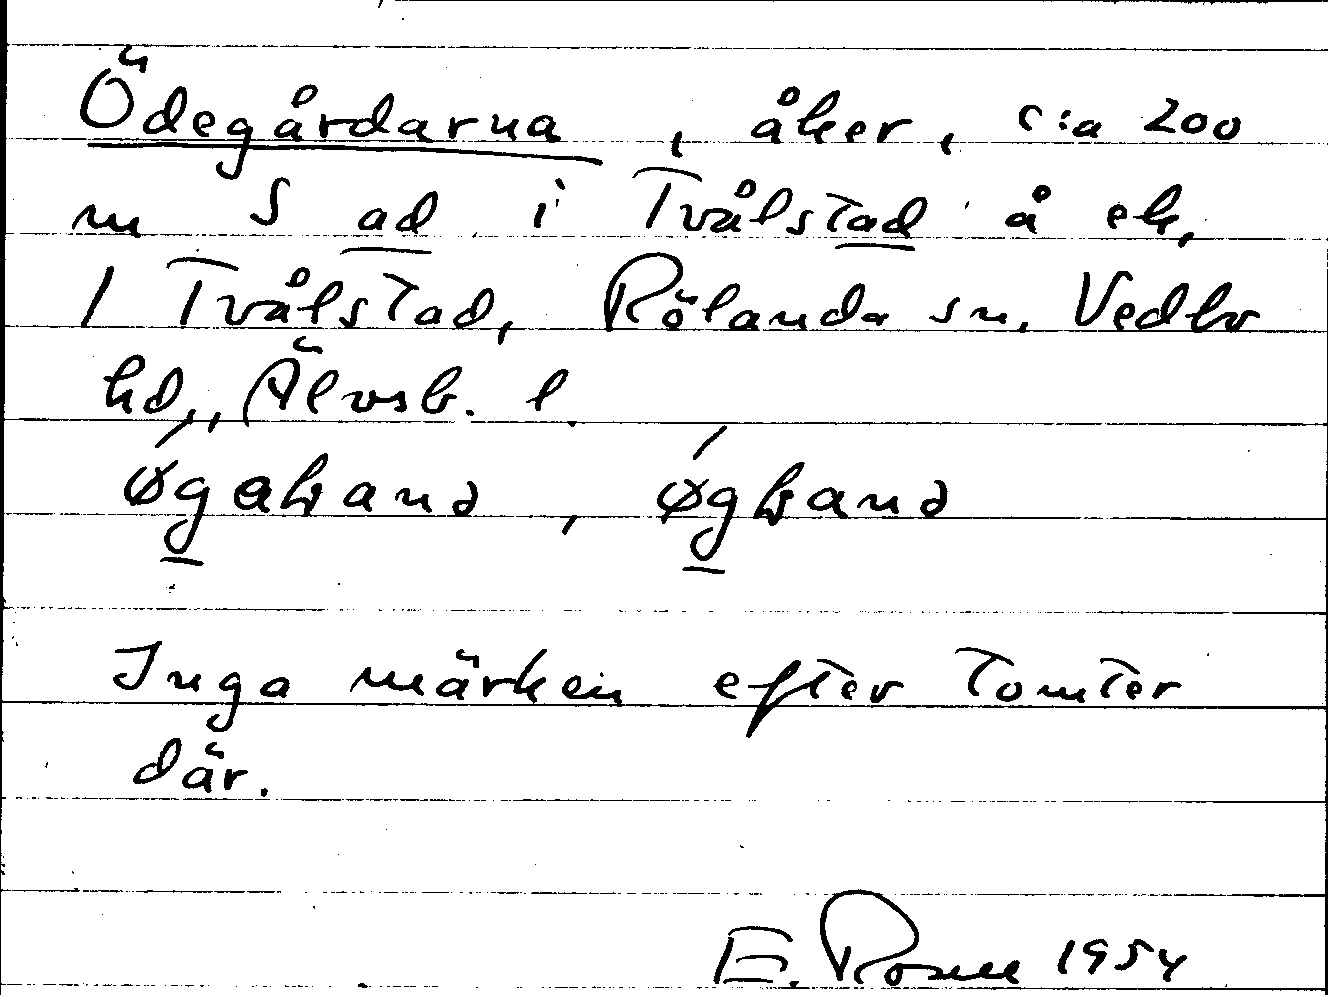 Ödegårdarna, åker, c:a 200
m S ad i Tvålstad å ek.
1 Tvålstad, Rölanda sn. Vedbo
hd., Älvsb. l.
Inga märken efter tomter
där.
E. Rosell 1954